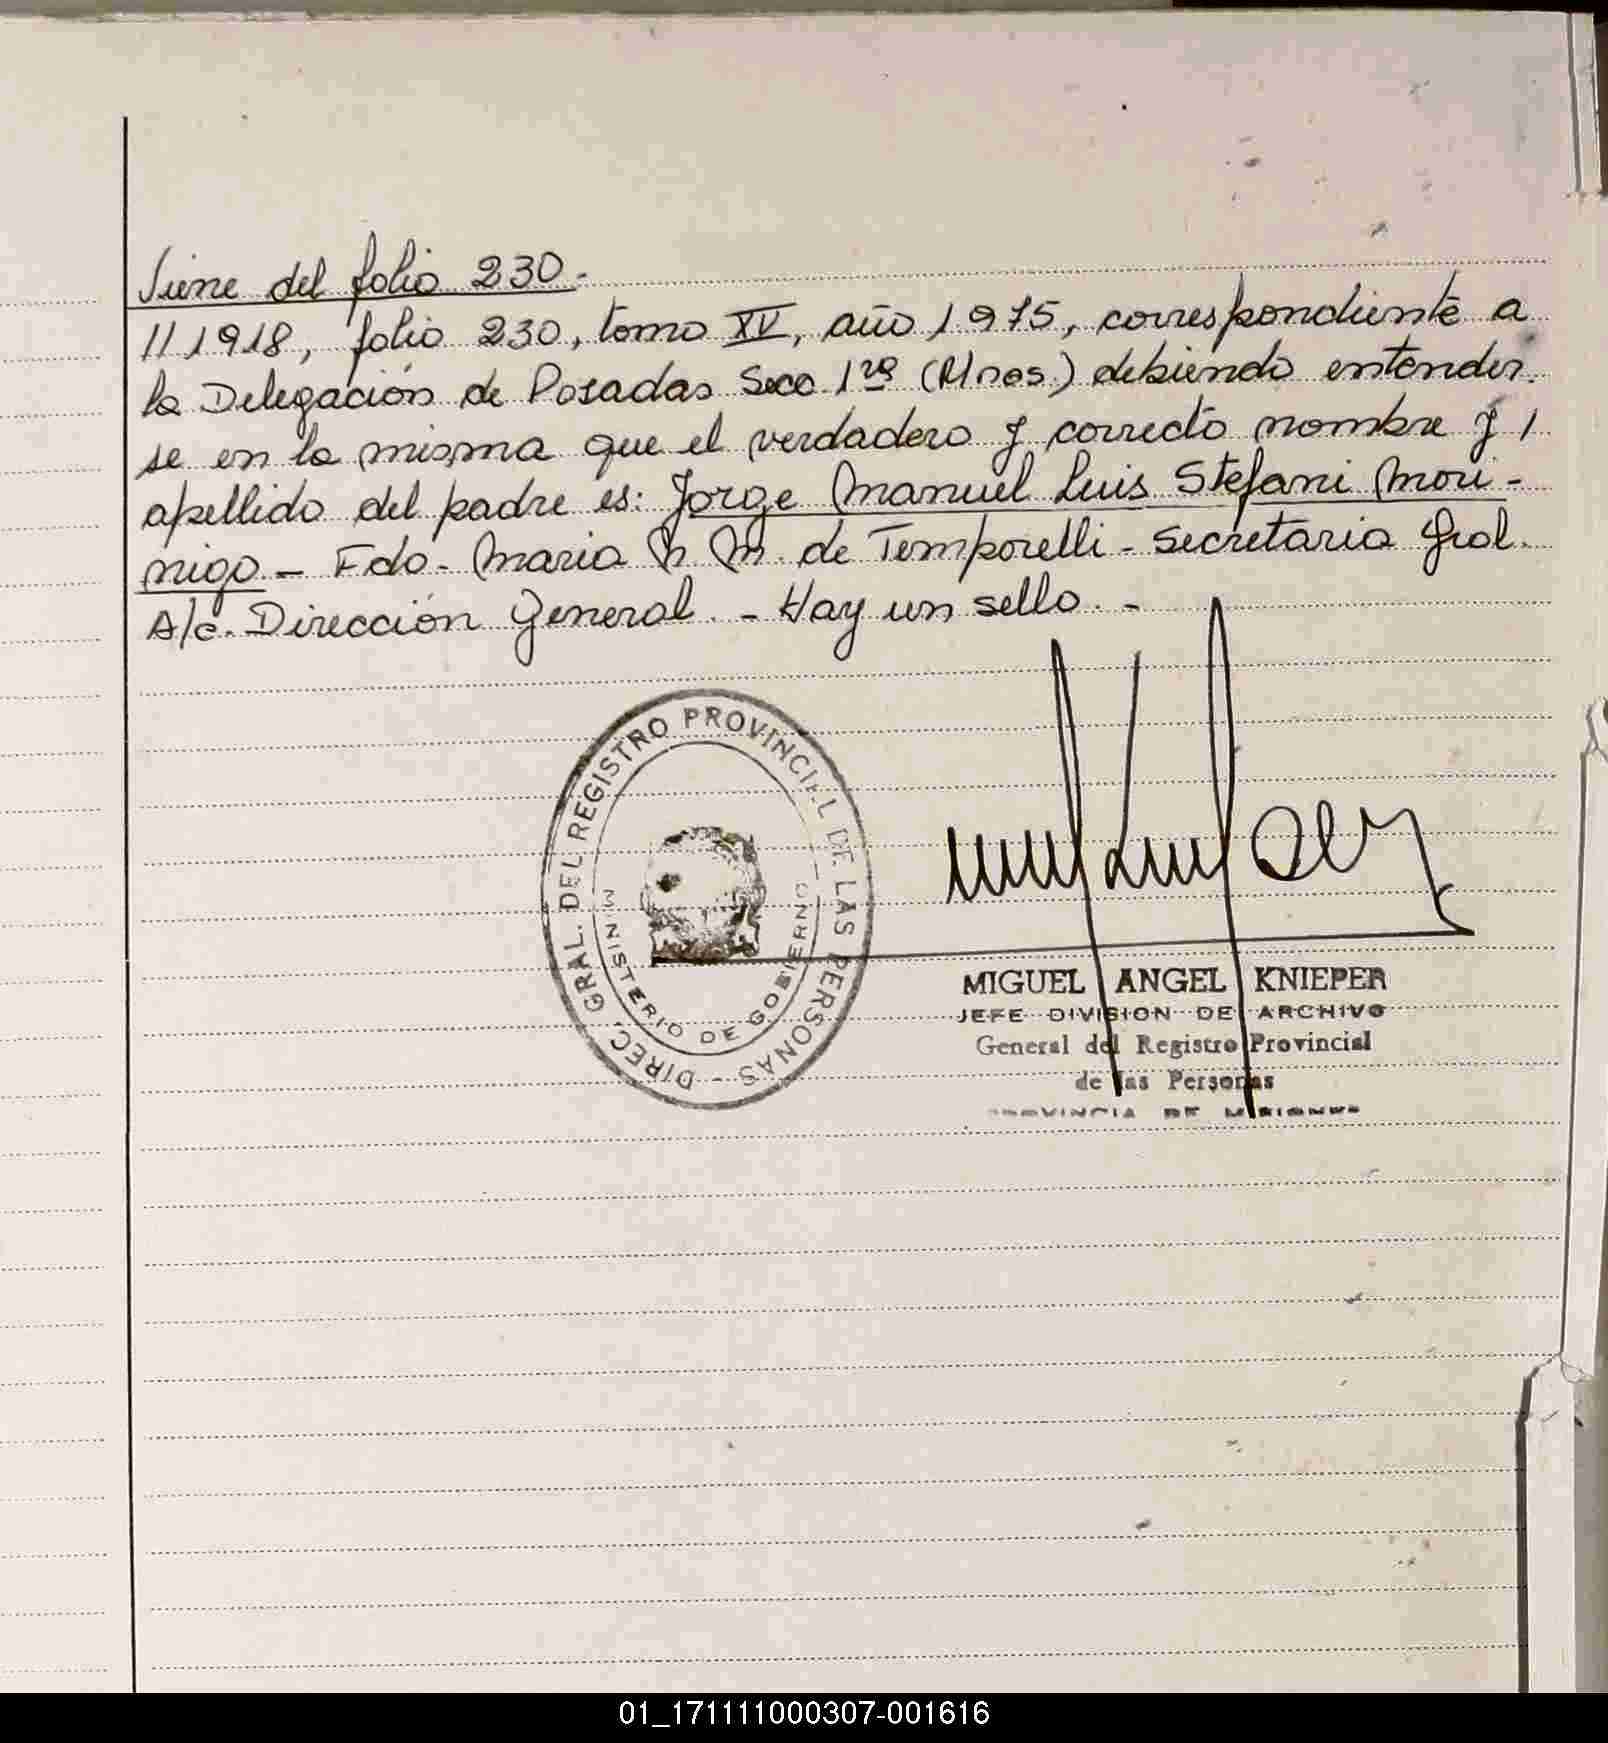 Viene del folio 230.-
// 1918, folio 230, tomo XV, año 1975, correspondiente a
la Delegación de Posadas Secc. 1ra (Mnes.) debiendo entender.
se en la misma que el verdadero y correcto nombre y /
apellido del padre es: Jorge Manuel Luis Stefani Mori-
nigo - Fdo - Maria M. de Temporelli - Secretaria Gral.
A/c. Dirección General. - Hay un sello. -
DIREC. GRAL. DEL REGISTRO PROVINCIAL DE LAS PERSONAS -
MINISTERIO DE GOBIERNO
MIGUEL ANGEL KNIEPER
JEFE DIVISION DE ARCHIVO
General del Registro Provincial
de las Personas
PROVINCIA DE MISIONES
01_171111000307-001616